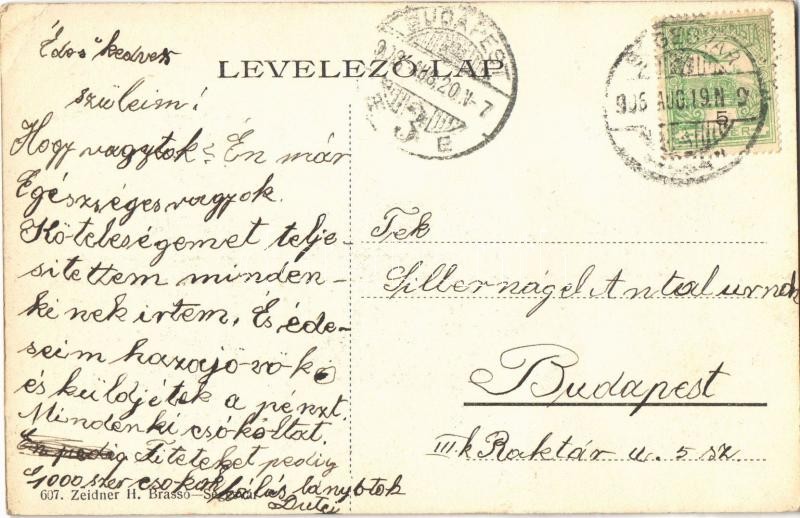 LEVELEZŐ-LAP
Édes kedves
szüleim!
Hogy vagytok? Én már
Egészséges vagyok.
Kötelességemet telje-
sitettem minden-
kinek irtem. És éde-
seim hazajövök
és küldjétek a pénzt.
Mindenki csókoltat.
Én pedig Titeteket pedig
1000 szer csokol hálás lánytok
607. Zeidner H. Brassó—
BUDAPEST
906 AUG. 20. N 7
3 E
906 AUG. 19. N 9
5
Tek
Silbernágel Antal urnak
Budapest
III. k Raktár u. 5 sz.